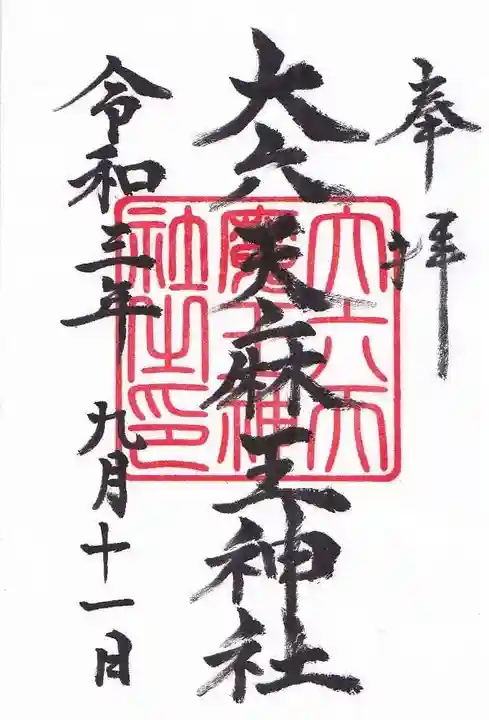 奉拝
大六天麻王神社
大六天
魔王神
社之印
令和三年 九月十一日